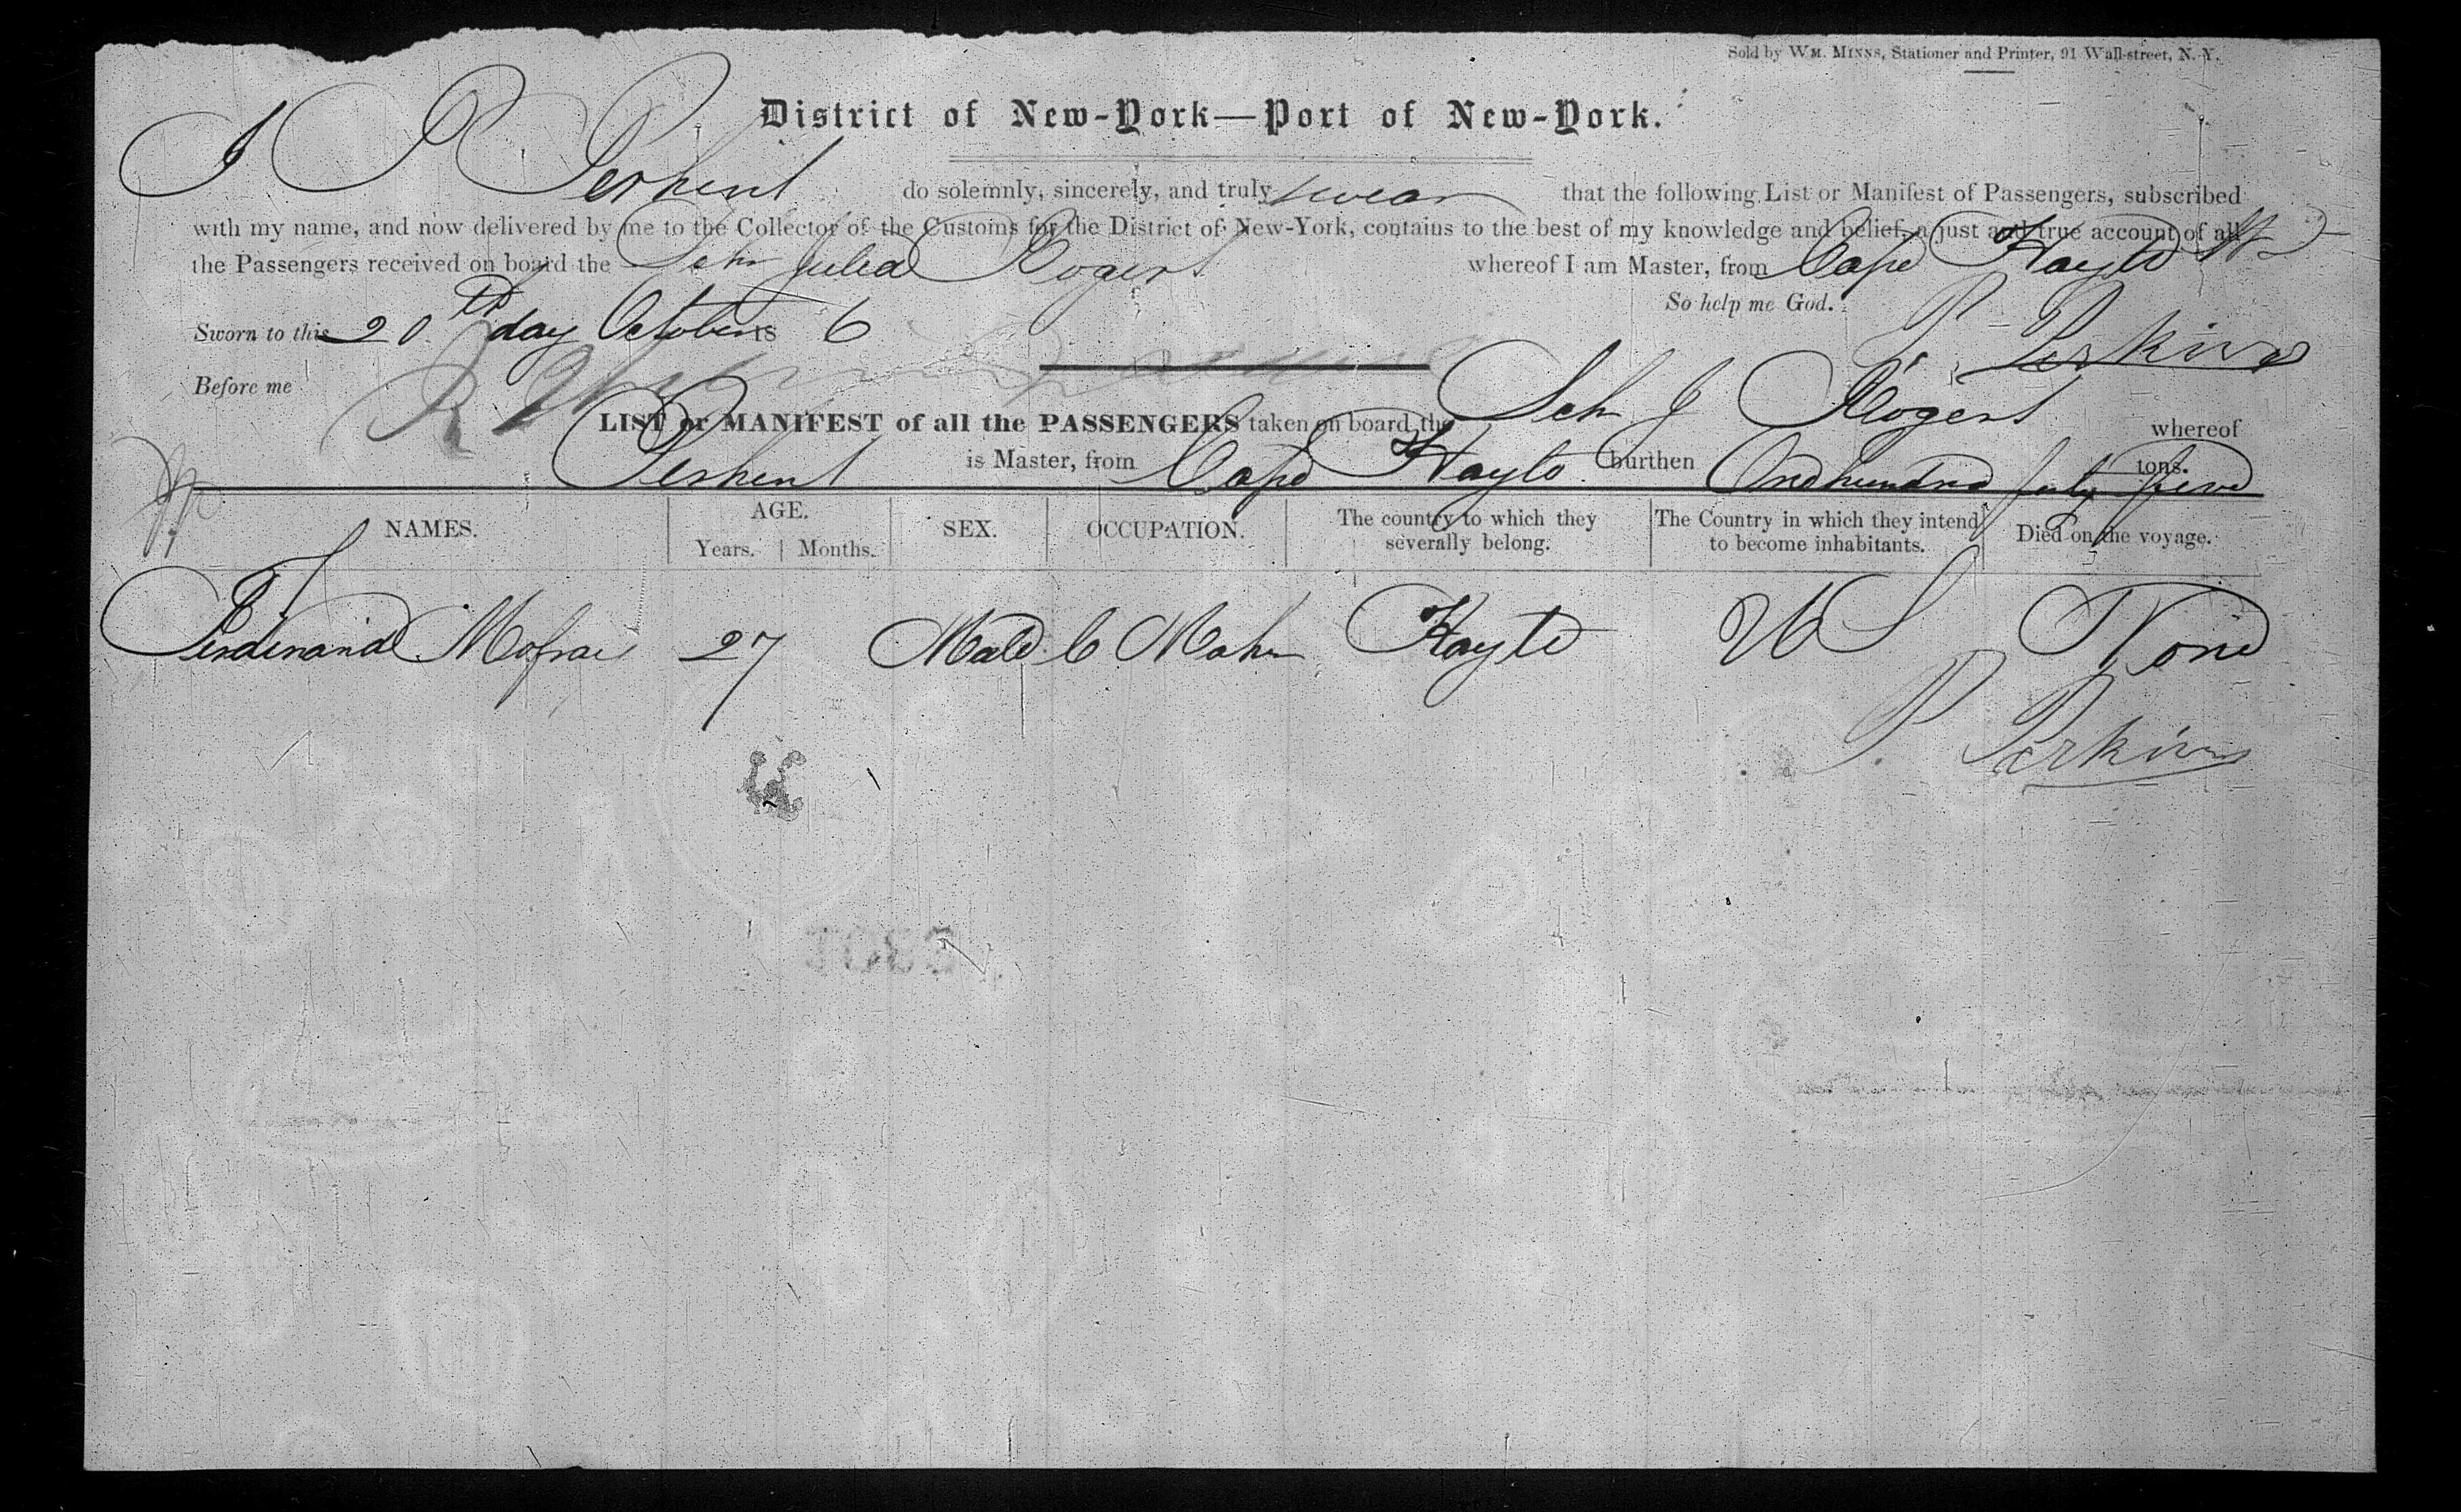 Sold by WM. MINNS, Stationer and Printer, 91 Wall-street, N. Y.
District of New-York—Port of New-York.
I P Perkins do solemnly, sincerely, and truly swear that the following List or Manifest of Passengers, subscribed
with my name, and now delivered by me to the Collector of the Customs for the District of New-York, contains to the best of my knowledge and belief, a just and true account of all
the Passengers received on board the Schr Julia Rogers whereof I am Master, from Cape Hayte
So help me God.
Sworn to this 20th day October 18 6 P. Perkins
Before me
LIST or MANIFEST of all the PASSENGERS taken on board the Schr J Rogers whereof
Perkins is Master, from Cape Hayte burthen Onehundred forty five tons.
NAMES. AGE. Years. Months. SEX. OCCUPATION. The country to which they severally belong. The Country in which they intend to become inhabitants. Died on the voyage.
Ferdinand 27 Male Hayte US None
P. Perkins